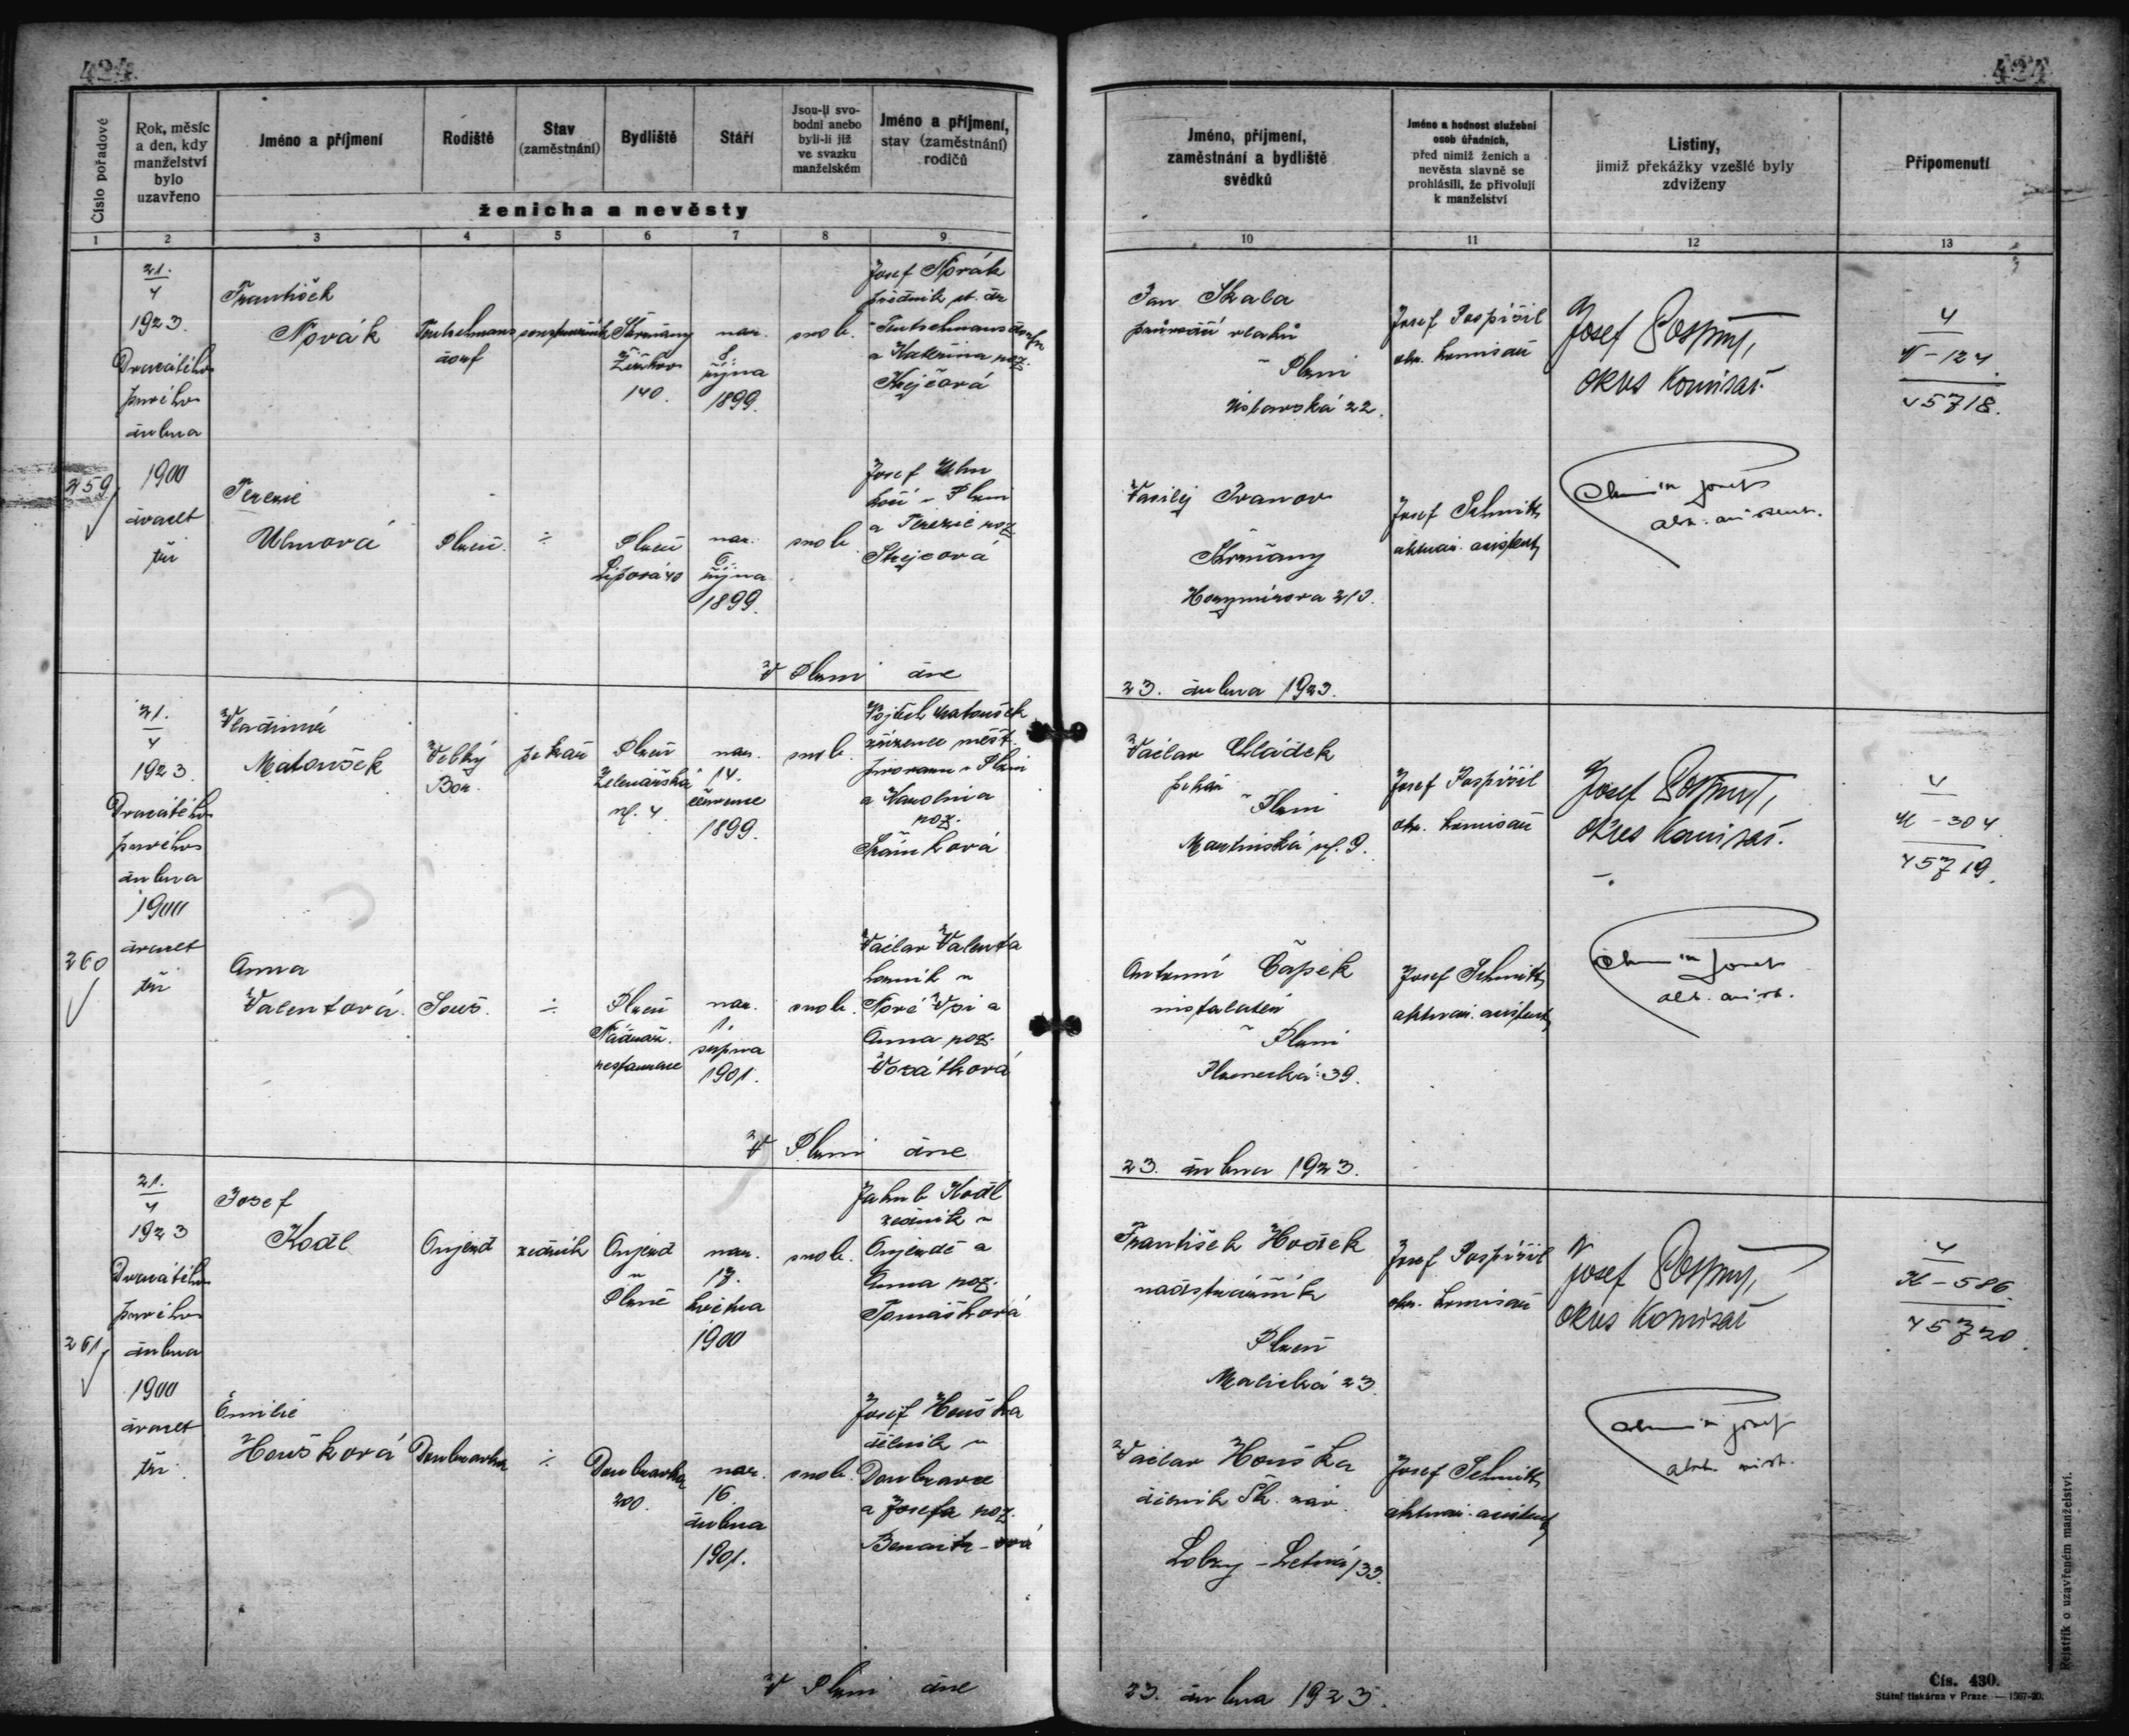 424
424
Číslo pořadové
Rok, měsíc
a den, kdy
manželství
bylo
uzavřeno
Jméno a příjmení
Rodiště
Stav
(zaměstnání)
Bydliště
Stáří
Jsou-li svo-
bodni anebo
byli-li již
ve svazku
manželském
Jméno a příjmení,
stav (zaměstnání)
rodičů
ženicha a nevěsty
Jméno, příjmení,
zaměstnání a bydliště
svědků
Jméno a hodnost služební
osob úředních,
před nimiž ženich a
nevěsta slavně se
prohlásili, že přivolují
k manželství
Listiny,
jimiž překážky vzešlé byly
zdviženy
Připomenutí
1
2
3
4
5
6
7
8
9
10
11
12
13
259
21.
4
1923.
Dvacátého
prvého
dubna
1900
dvacet
tři
František
Novák
Teutschmans
dorf
Skvrňany
Žižkov
140.
nar.
8.
října
1899.
svob.
Josef Novák
v Teutschmansdorfu
a Kateřina roz.
Krejčová
Jan Skala
průvodčí vlaků
v Plzni
22.
Josef Pospíšil
okr. komisař
Josef Pospíšil,
okres komisař.
4
N-124.
45718.
Terezie
Ulmová
Plzeň.
÷
Plzeň
Lipová 40
nar.
6.
října
1899.
svob.
Josef Ulm
kočí v Plzni
a Terezie roz.
Vasilij Ivanov
Skvrňany
213.
Josef Schmitt
aktuár. asistent
V Plzni dne
23. dubna 1923.
260
21.
4
1923.
Dvacátého
prvého
dubna
1900
dvacet
tři
Vladimír
Matoušek
Velký
Bor.
pekař
Plzeň
Zelenářská
ul. 4.
nar.
14.
července
1899.
svob.
Vojtěch Matoušek
zřízenec měst.
pivovaru v Plzni
a Karolina
roz.
Václav Chládek
pekař
v Plzni
Martinská ul. 9.
Josef Pospíšil
okr. komisař
Josef Pospíšil,
okres komisař.
4
M-304.
45719.
Anna
Valentová.
Souš.
÷
Plzeň
Nádraž.
restaurace
nar.
1.
srpna
1901.
svob.
Václav Valenta
horník v
Nové Vsi a
Anna roz.
Vozátková
Antonín Čapek
instalatér
v Plzni
39.
Josef Schmitt
aktuár. asistent
V Plzni dne
23. dubna 1923.
261
21.
4
1923
Dvacátého
prvého
dubna
1900
dvacet
tři.
Josef
Kodl
Oujezd
zedník
Oujezd
u
Plzně
nar.
17.
května
1900
svob.
Jakub Kodl
zedník v
Oujezdě a
Anna roz.
Tomášková
František Hošek
nadstrážník
Plzeň
Malická 23.
Josef Pospíšil
okr. komisař
Josef Pospíšil,
okres komisař
4
K-586.
45720.
Emilie
Houšková
Doubravka
÷
Doubravka
200.
nar.
16.
dubna
1901.
svob.
Josef Houška
dělník v
Doubravce
a Josefa roz.
Václav Houška
dělník Šk. záv.
Lobzy - Letná 133.
Josef Schmitt
aktuár. asistent
V Plzni dne
23. dubna 1923.
Rejstřík o uzavřeném manželství.
Čís. 430.
Státní tiskárna v Praze. — 1567-20.